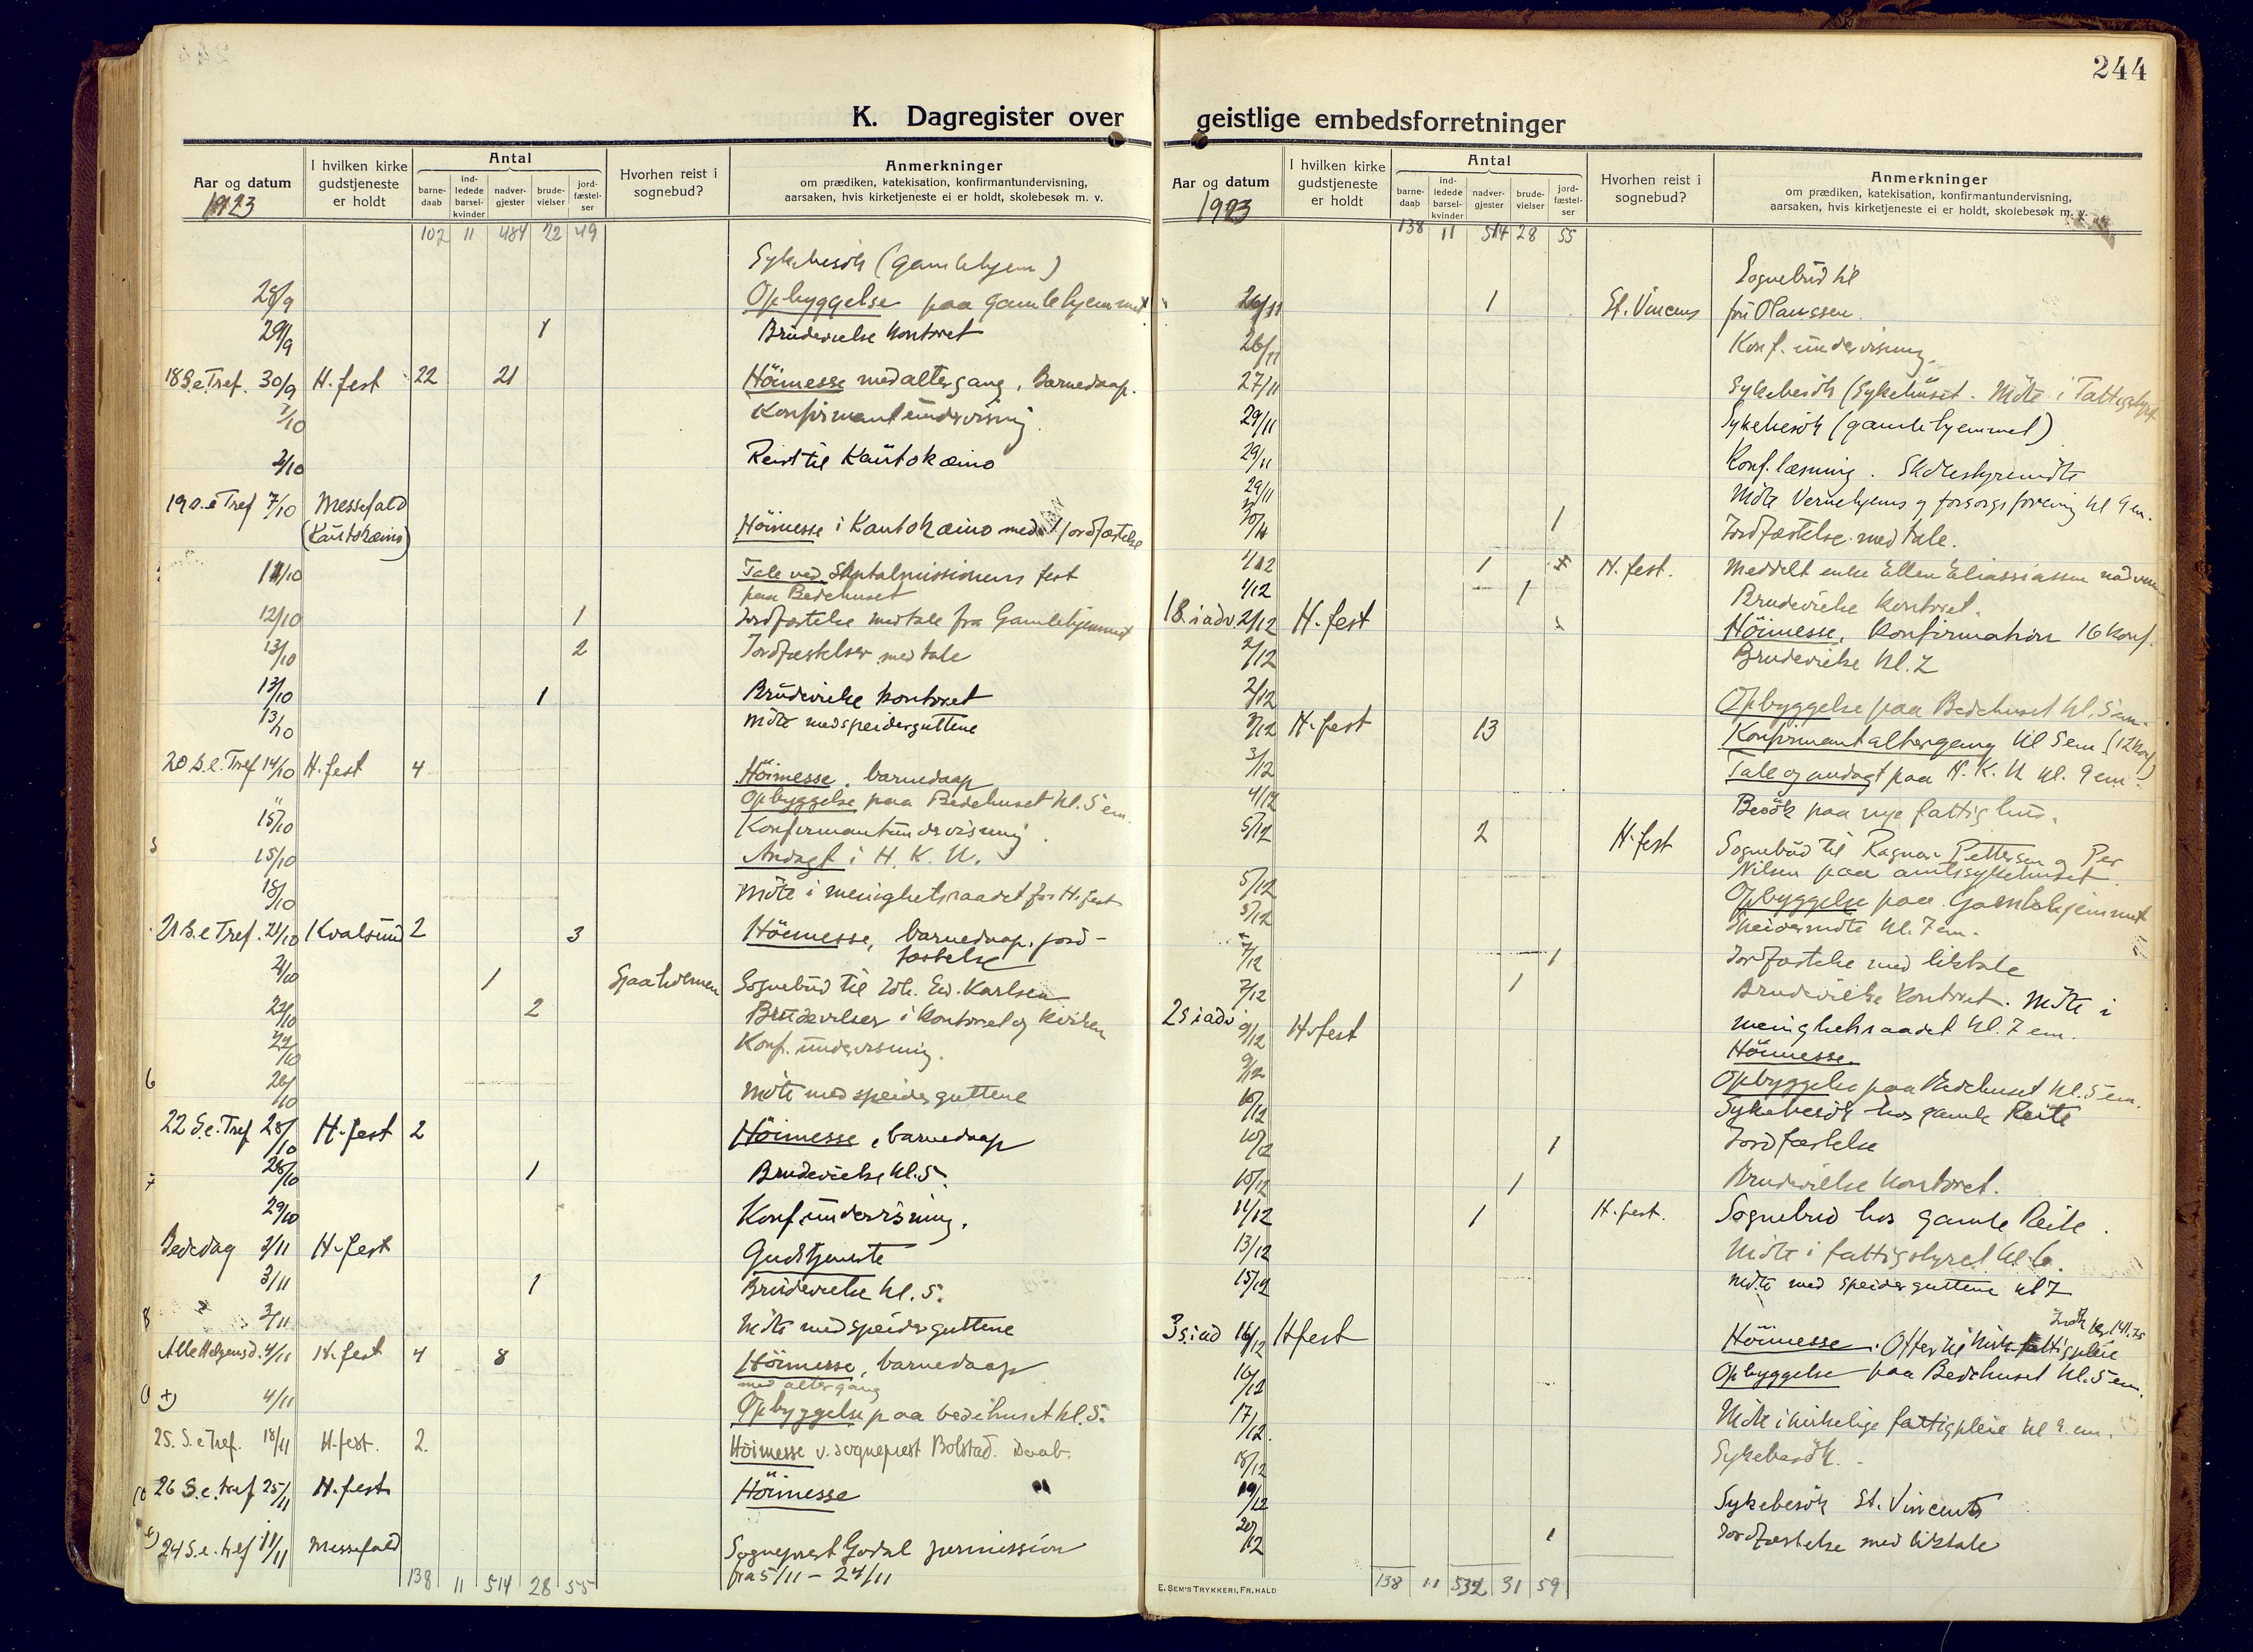 244
K. Dagregister over geistlige embedsforretninger
Aar og datum
1923
I hvilken kirke gudstjeneste er holdt
Antal
barnedaab
indledede barselkvinder
nadvergjester
brudevielser
jordfæstelser
Hvorhen reist i sognebud?
Anmerkninger
om prædiken, katekisation, konfirmantundervisning,
aarsaken, hvis kirketjeneste ei er holdt, skolebesøk m. v.
102 11 484 22 49
Sykebesök (gamlehjem)
28/9 Opbyggelse paa gamlehjemmet
29/9 1 Brudevielse kontoret
18 S.e.Tref. 30/9 H.fest 22 21 Höimesse med altergang, Barnedaap.
1/10 Konfirmantundervisning.
2/10 Reist til Kautokæino
19 s.e Tref 7/10 Messefald
(Kautokæino) Höimesse i Kautokæino med 1 jordfæstelse
11/10 Tale ved Skptalmissionens fest
paa Bedehuset
12/10 1 Jordfæstelse med tale fra Gamlehjemmet
13/10 2 Jordfæstelser med tale
13/10 1 Brudevielse kontoret
13/10 Möte med speiderguttene
20 S.e.Tref 14/10 H.fest 4 Höimesse, barnedaap
" Opbyggelse paa Bedehuset kl. 5 em.
15/10 Konfirmantundervisning.
15/10 Andagt i H. K. U.
18/10 Möte i menighetsraadet for H.fest
21 S.e Tref. 21/10 Kvalsund 2 3 Höimesse, barnedaap, jord-
fæstelse
21/10 1 Sjaaholmen Sognebud til Joh. Ed. Karlsen
22/10 2 Brudevielser i kontoret og kirken
22/10 Konf. undervisning.
26/10 Möte med speiderguttene
22 S.e.Tref 28/10 H.fest 2 Höimesse, barnedaap
28/10 1 Brudevielse kl. 5.
29/10 Konf. undervisning.
Bededag 2/11 H.fest Gudstjeneste
3/11 1 Brudevielse kl. 5.
3/11 Möte med speiderguttene
Alle Helgensd. 4/11 H.fest 4 8 Höimesse, barnedaap
med altergang
+) 4/11 Opbyggelse paa bedehuset kl. 5.
25. S.e Tref. 18/11 H.fest. 2. Höimesse v. sogneprest Bolstad. Daab.
26 S.e. tref 25/11 H.fest Höimesse
+) 24 S.e. tref 11/11 Messefald Sogneprest Gödal permission
fra 5/11 – 24/11
138 11 514 28 55
Aar og datum
1923
I hvilken kirke gudstjeneste er holdt
Antal
barnedaab
indledede barselkvinder
nadvergjester
brudevielser
jordfæstelser
Hvorhen reist i sognebud?
Anmerkninger
om prædiken, katekisation, konfirmantundervisning,
aarsaken, hvis kirketjeneste ei er holdt, skolebesøk m. v.
138 11 514 28 55
Sognebud til
26/11 1 St. Vincens fru Olaussen.
26/11 Konf. undervisning.
27/11 Sykebesök (Sykehuset. Möte i Fattigstyret
29/11 Sykebesök (gamlehjemmet)
29/11 Konf. læsning. Skolestyremöte
29/11 Möte Vernehjems og forsorgsforening kl 9 em.
30/11 1 Jordfæstelse med tale.
1/12 1 H.fest. Meddelt enke Ellen Eliassen nadveren
1/12 1 Brudevielse kontoret.
1 S. i adv. 2/12 H.fest Höimesse, Konfirmation 16 konf.
2/12 Brudevielse kl. 2
2/12 Opbyggelse paa Bedehuset kl. 5 em.
3/12 H.fest 13 Konfirmantaltergang kl 5 em. (12 konf)
3/12 Tale og andagt paa H. K. U kl. 9 em.
4/12 Besök paa nye fattighus.
5/12 2 H.fest Sognebud til Ragnar Pettersen og Per
Nilsen paa amtssykehuset.
5/12 Opbyggelse paa Gamlehjemmet
5/12 Speidermöte kl. 7 em.
7/12 1 Jordfæstelse med liktale
7/12 1 Brudevielse kontoret. Möte i
menighetsraadet kl. 7 em.
2 s i adv 9/12 H.fest Höimesse
9/12 Opbyggelse paa Bedehuset kl. 5 em.
10/12 Sykebesök hos gamle Reite
10/12 1 Jordfæstelse
10/12 1 Brudevielse kontoret.
11/12 1 H.fest. Sognebud hos gamle Reite.
13/12 Möte i fattigstyret kl. 6.
15/12 Möte med speiderguttene kl 7
3 s. i ad 16/12 Hfest Höimesse. Offer til kirk. fattigpleie
Indk kr. 141.75
16/12 Opbyggelse paa Bedehuset kl. 5 em.
17/12. Möte i kirkelige fattigpleie kl 9. em.
18/12 Sykebesök.
19/12 Sykebesök St. Vincents
20/12 1 Jordfæstelse med liktale
138 11 532 31 59
E. SEM'S TRYKKERI, FR.HALD